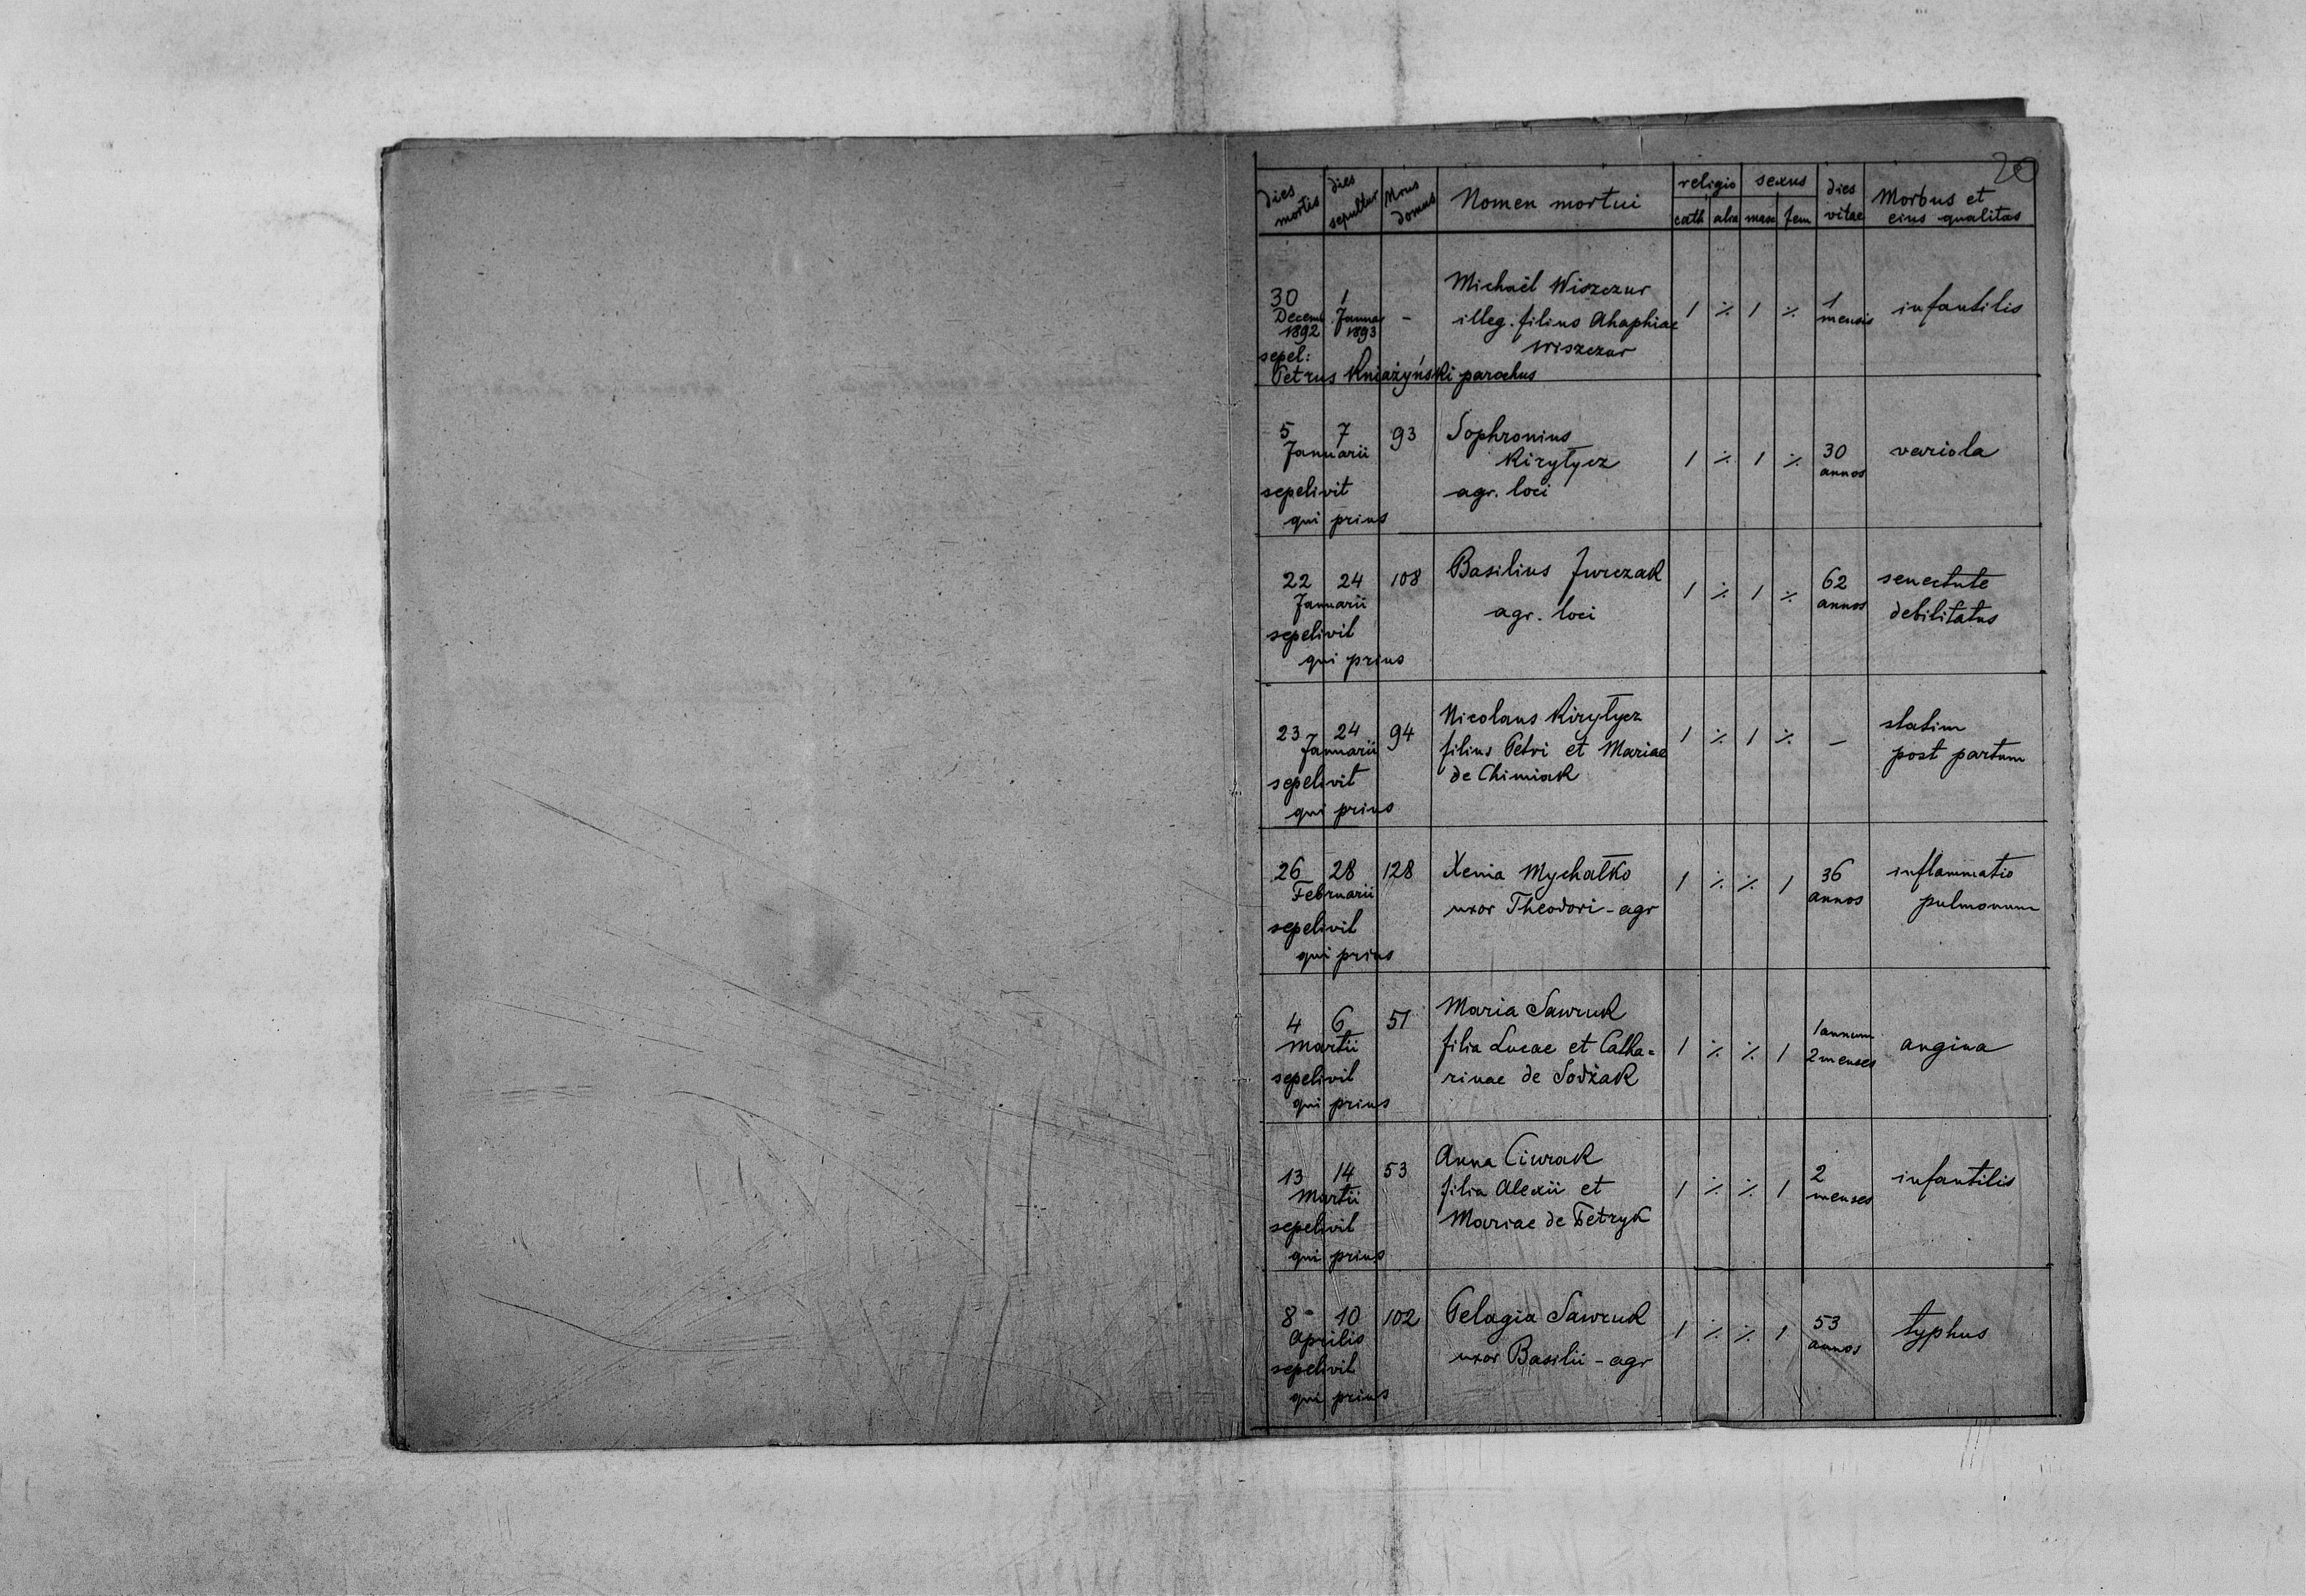 20
dies mortis | dies sepultur | Nrus domus | Nomen mortui | religio | sexus | dies vitae | Morbus et eius qualitas
cath | alia | masc | fem
30 Decemb 1892 | 1 Januar 1893 | - | Michaël Wiszczur | 1 | ⁒ | 1 | ⁒ | 1 mensis | infantilis
illeg. filius Ahaphiae
Wiszczur
sepel:
Petrus Kniażyński parochus
5 | 7 | 93 | Sophronius | 1 | ⁒ | 1 | ⁒ | 30 annos | variola
Januarii | Kiryłycz
sepelivit | agr. loci
qui prius
22 | 24 | 108 | Basilius Jurczak | 1 | ⁒ | 1 | ⁒ | 62 annos | senectute
Januarii | agr. loci | debilitatus
sepelivit
qui prius
23 | 24 | 94 | Nicolaus Kiryłycz | 1 | ⁒ | 1 | ⁒ | - | statim
Januarii | filius Petri et Mariae | post partum
sepelivit | de Chimiak
qui prius
26 | 28 | 128 | Xenia Mychałko | 1 | ⁒ | ⁒ | 1 | 36 annos | inflammatio
Februarii | uxor Theodori - agr | pulmonum
sepelivit
qui prius
4 | 6 | 51 | Maria Sawruk | 1 | ⁒ | ⁒ | 1 | 1 annum 2 menses | angina
Martii | filia Lucae et Catha=
sepelivit | rinae de Sodżak
qui prius
13 | 14 | 53 | Anna Ciurak | 1 | ⁒ | ⁒ | 1 | 2 menses | infantilis
Martii | filia Alexii et
sepelivit | Mariae de Fetryk
qui prius
8 - | 10 | 102 | Pelagia Sawruk | 1 | ⁒ | ⁒ | 1 | 53 annos | typhus
Aprilis | uxor Basilii - agr
sepelivit
qui prius